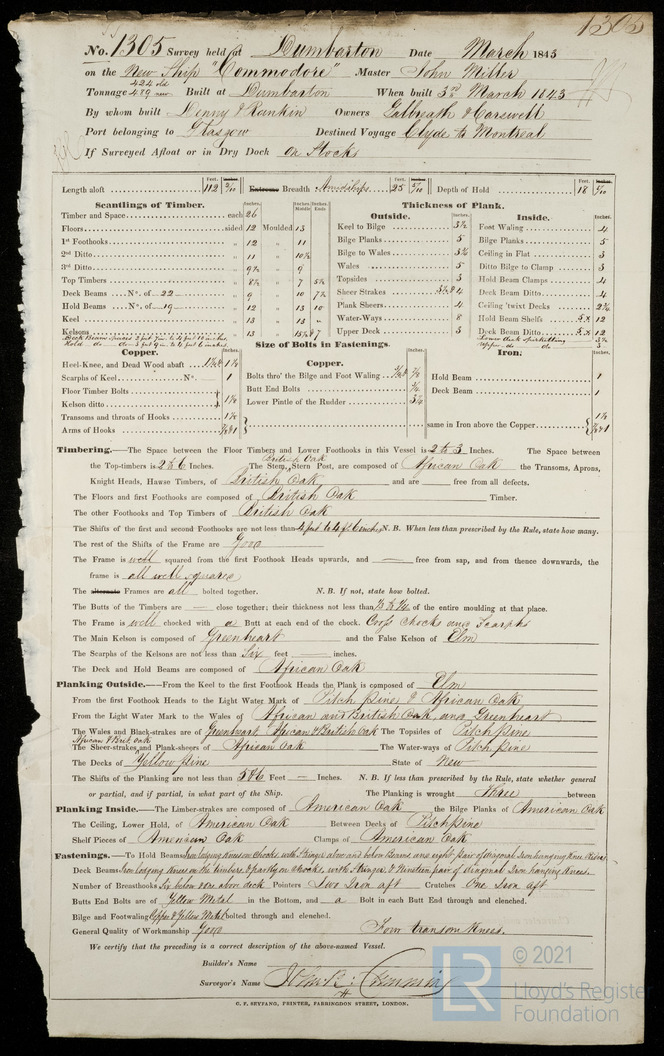 1305
No. 1305 Survey held at Dumbarton Date March 1843
on the New Ship "Commodore" Master John Miller
Tonnage 424 old 489 new Built at Dumbarton When built 3rd March 1843
By whom built Denny & Rankin Owners Galbreath & Carswell
Port belonging to Glasgow Destined Voyage Clyde to Montreal
If Surveyed Afloat or in Dry Dock on Stocks
Length aloft 112 Extreme Breadth Amidships 25 Depth of Hold 18
Scantlings of Timber.
Timber and Space each 26
Floors sided 12 Moulded 13
1st Foothooks " 12 " 11
2nd Ditto " 11 " 10½
3rd Ditto " 9½ " 9
Top Timbers " 8½ " 7 5½
Deck Beams No. of 22 " 9 10 7½
Hold Beams No. of 19 " 12 13 10
Keel " 13 " 13 "
Kelsons " 13
Thickness of Plank.
Outside.
Keel to Bilge 3½
Bilge Planks 5
Bilge to Wales 3¾
Wales 5
Topsides 3
Sheer Strakes 4
Plank Sheers 4
Water-Ways 8
Upper Deck 3
Inside.
Foot Waling 4
Bilge Planks 5
Ceiling in Flat 3
Ditto Bilge to Clamp 3
Hold Beam Clamps 4
Deck Beam Ditto 4
Ceiling 'twixt Decks 2½
Hold Beam Shelfs 12
Deck Beam Ditto 12
Lower deck spirketting 3½
Upper do do 3
Size of Bolts in Fastenings.
Copper.
Heel-Knee, and Dead Wood abaft 1⅛
Scarphs of Keel No. 1
Floor Timber Bolts
Kelson ditto 1⅛
Transoms and throats of Hooks 1⅛
Arms of Hooks ⅞ & 1
Copper.
Bolts thro' the Bilge and Foot Waling
Butt End Bolts ¾
Lower Pintle of the Rudder
Iron.
Hold Beam 1
Deck Beam 1
same in Iron above the Copper 1⅛ ⅞ & 1
Timbering.—The Space between the Floor Timbers and Lower Foothooks in this Vessel is 2 to 3 Inches. The Space between
the Top-timbers is 2 to 6 Inches. The Stem, British Oak Stern Post, are composed of African Oak the Transoms, Aprons,
Knight Heads, Hawse Timbers, of British Oak and are — free from all defects.
The Floors and first Foothooks are composed of British Oak Timber.
The other Foothooks and Top Timbers of British Oak
The Shifts of the first and second Foothooks are not less than 4 feet to 4 ft 6 inches N. B. When less than prescribed by the Rule, state how many.
The rest of the Shifts of the Frame are Good
The Frame is well squared from the first Foothook Heads upwards, and — free from sap, and from thence downwards, the
frame is all well squared
The alternate Frames are all bolted together. N. B. If not, state how bolted.
The Butts of the Timbers are — close together; their thickness not less than ⅓ to ¼ of the entire moulding at that place.
The Frame is well chocked with a Butt at each end of the chock. Cross Chocks and Scarphs
The Main Kelson is composed of Greenheart and the False Kelson of Elm
The Scarphs of the Kelsons are not less than Six feet — inches.
The Deck and Hold Beams are composed of African Oak
Planking Outside.—From the Keel to the first Foothook Heads the Plank is composed of Elm
From the first Foothook Heads to the Light Water Mark of Pitch Pine & African Oak
From the Light Water Mark to the Wales of African and British Oak and Greenheart
The Wales and Black-strakes are of Greenheart African & British Oak The Topsides of Pitch pine
African & Brit. Oak
The Sheer-strakes and Plank-sheers of African Oak The Water-ways of Pitch Pine
The Decks of Yellow Pine State of New
The Shifts of the Planking are not less than 5 & 6 Feet — Inches. N. B. If less than prescribed by the Rule, state whether general
or partial, and if partial, in what part of the Ship. The Planking is wrought three between
Planking Inside.—The Limber-strakes are composed of American Oak the Bilge Planks of American Oak
The Ceiling, Lower Hold, of American Oak Between Decks of Pitch Pine
Shelf Pieces of American Oak Clamps of American Oak
Fastenings.—To Hold Beams Iron lodging knees on Chocks, with Stringer above and below Beams and eight pair of diagonal Iron hanging Knee Riders
Deck Beams Iron lodging knees on the timbers & partly on Chocks, with Stringer, & Nineteen pair of diagonal Iron hanging Knees.
Number of Breasthooks Six below & one above deck Pointers Two Iron aft Crutches One Iron aft
Butts End Bolts are of Yellow Metal in the Bottom, and a Bolt in each Butt End through and clenched.
Bilge and Footwaling Copper & Yellow Metal bolted through and clenched.
General Quality of Workmanship Good Four transom Knees.
We certify that the preceding is a correct description of the above-named Vessel.
Builder's Name
Surveyor's Name
C. F. SEYFANG, PRINTER, FARRINGDON STREET, LONDON.
LR
© 2021
Lloyd's Register
Foundation